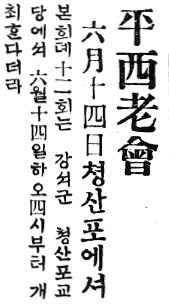 平西老會
六月十四日청산포에셔
본회데十二회는 강셔군 청산포교
당에셔 六월十四일하오四시부터 개
최흔다더라